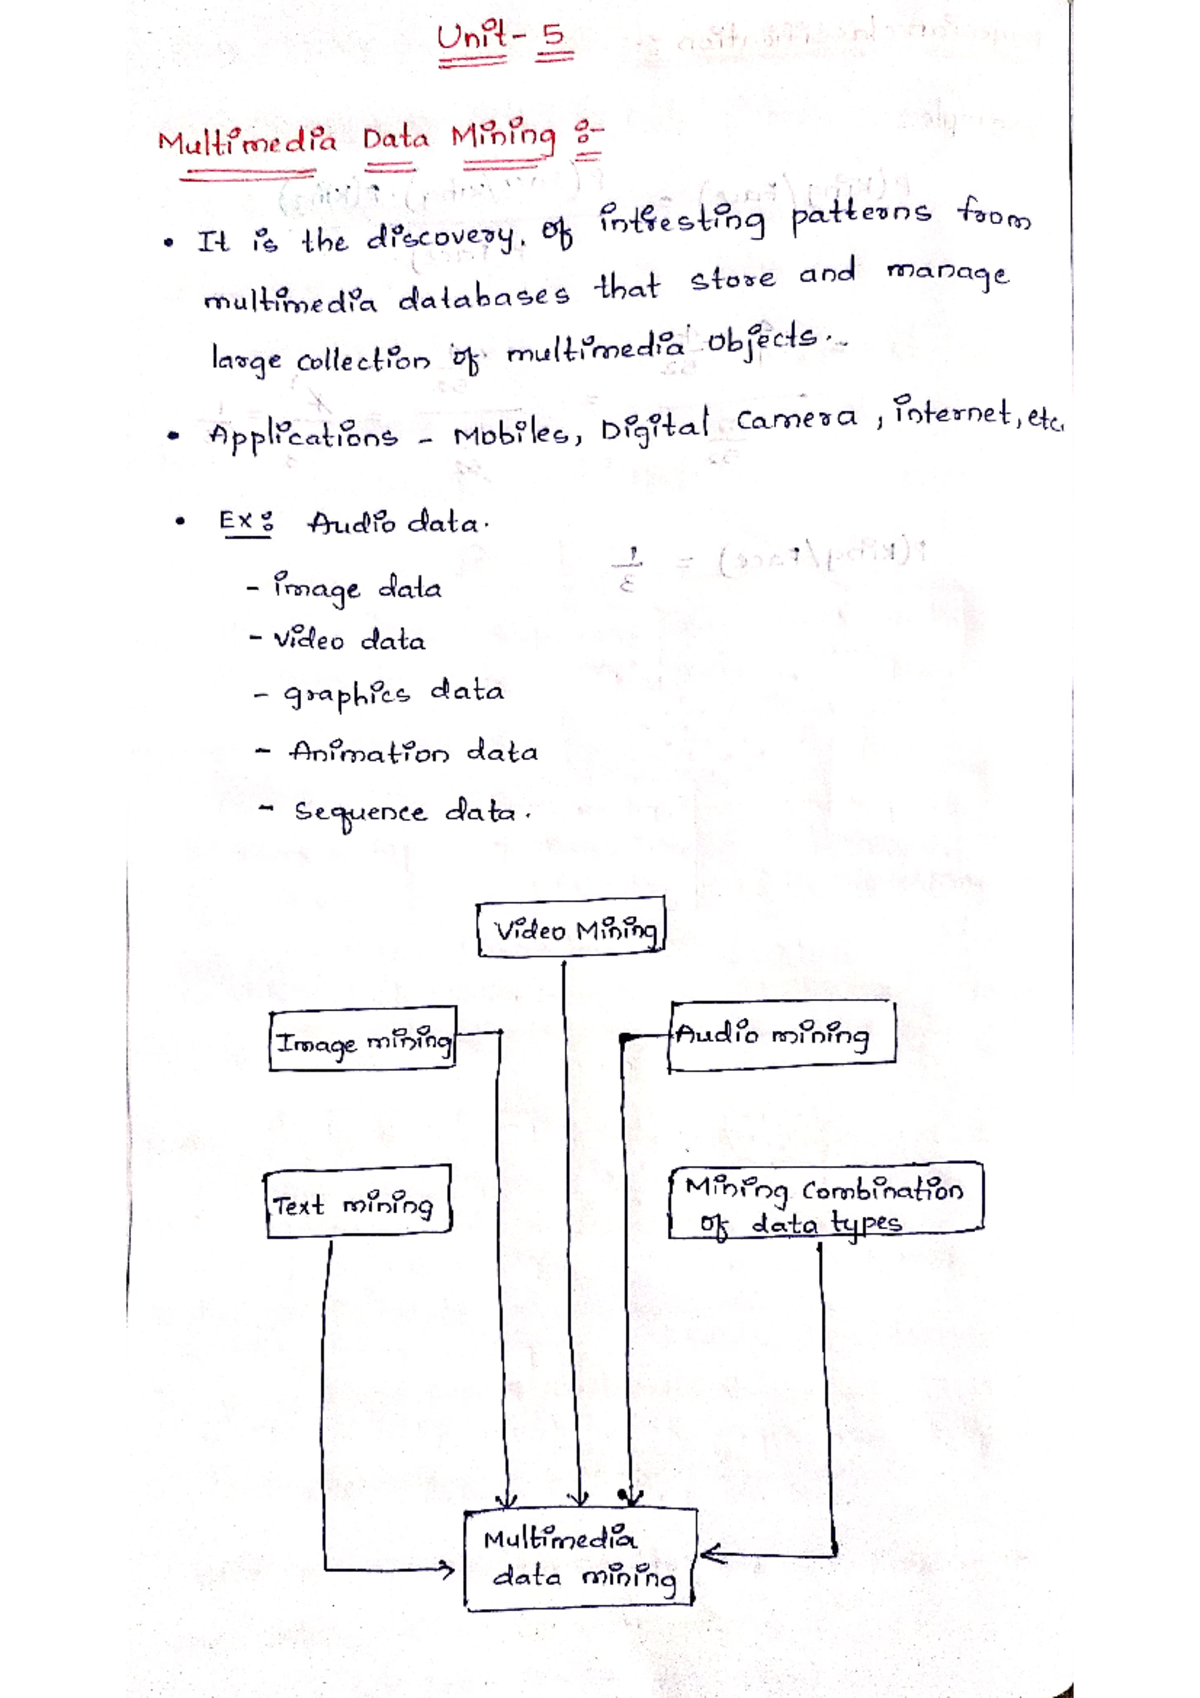 Unit- 5
Multimedia Data Mining :-
• It is the discovery, of intresting patterns from
multimedia databases that store and manage
large collection of multimedia objects.
• Applications - Mobiles, Digital Camera, internet, etc.
• Ex: Audio data.
- image data
- video data
- graphics data
- Animation data
- sequence data.
Video Mining
Image mining
Audio mining
Text mining
Mining Combination
of data types
Multimedia
data mining